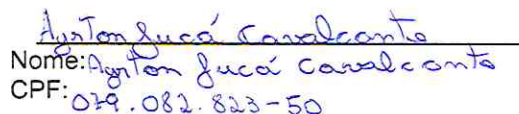 Ayrton Jucá Cavalcante
Nome: Ayrton Jucá Cavalcante
CPF: 079.082.823-50